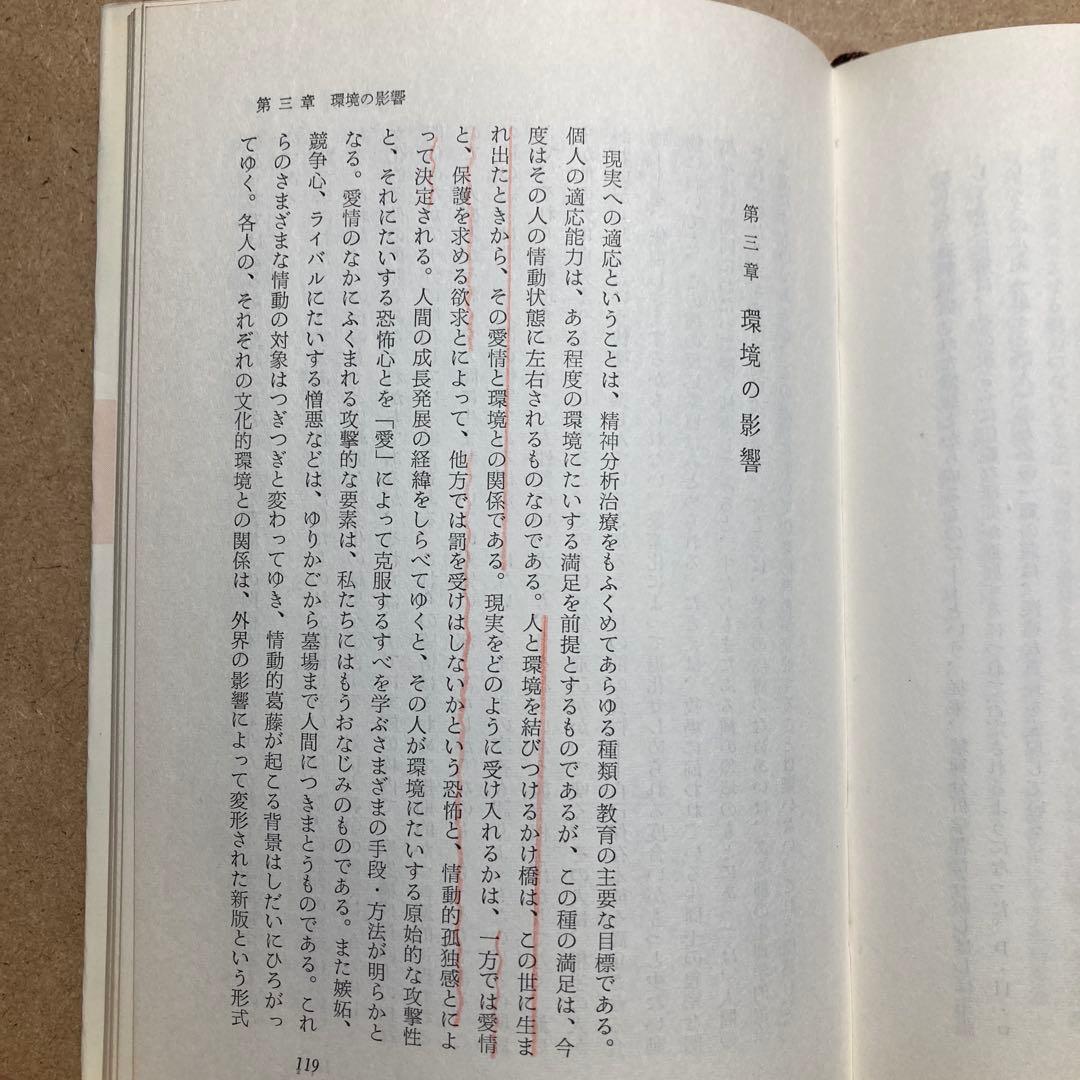 第三章　環境の影響
第三章　環境の影響
現実への適応ということは、精神分析治療をもふくめてあらゆる種類の教育の主要な目標である。
個人の適応能力は、ある程度の環境にたいする満足を前提とするものであるが、この種の満足は、今
度はその人の情動状態に左右されるものなのである。人と環境を結びつけるかけ橋は、この世に生ま
れ出たときから、その愛情と環境との関係である。現実をどのように受け入れるかは、一方では愛情
と、保護を求める欲求とによって、他方では罰を受けはしないかという恐怖と、情動的孤独感とによ
って決定される。人間の成長発展の経緯をしらべてゆくと、その人が環境にたいする原始的な攻撃性
と、それにたいする恐怖心とを「愛」によって克服するすべを学ぶさまざまの手段・方法が明らかと
なる。愛情のなかにふくまれる攻撃的な要素は、私たちにはもうおなじみのものである。また嫉妬、
競争心、ライバルにたいする憎悪などは、ゆりかごから墓場まで人間につきまとうものである。これ
らのさまざまな情動の対象はつぎつぎと変わってゆき、情動的葛藤が起こる背景はしだいにひろがっ
てゆく。各人の、それぞれの文化的環境との関係は、外界の影響によって変形された新版という形式
119